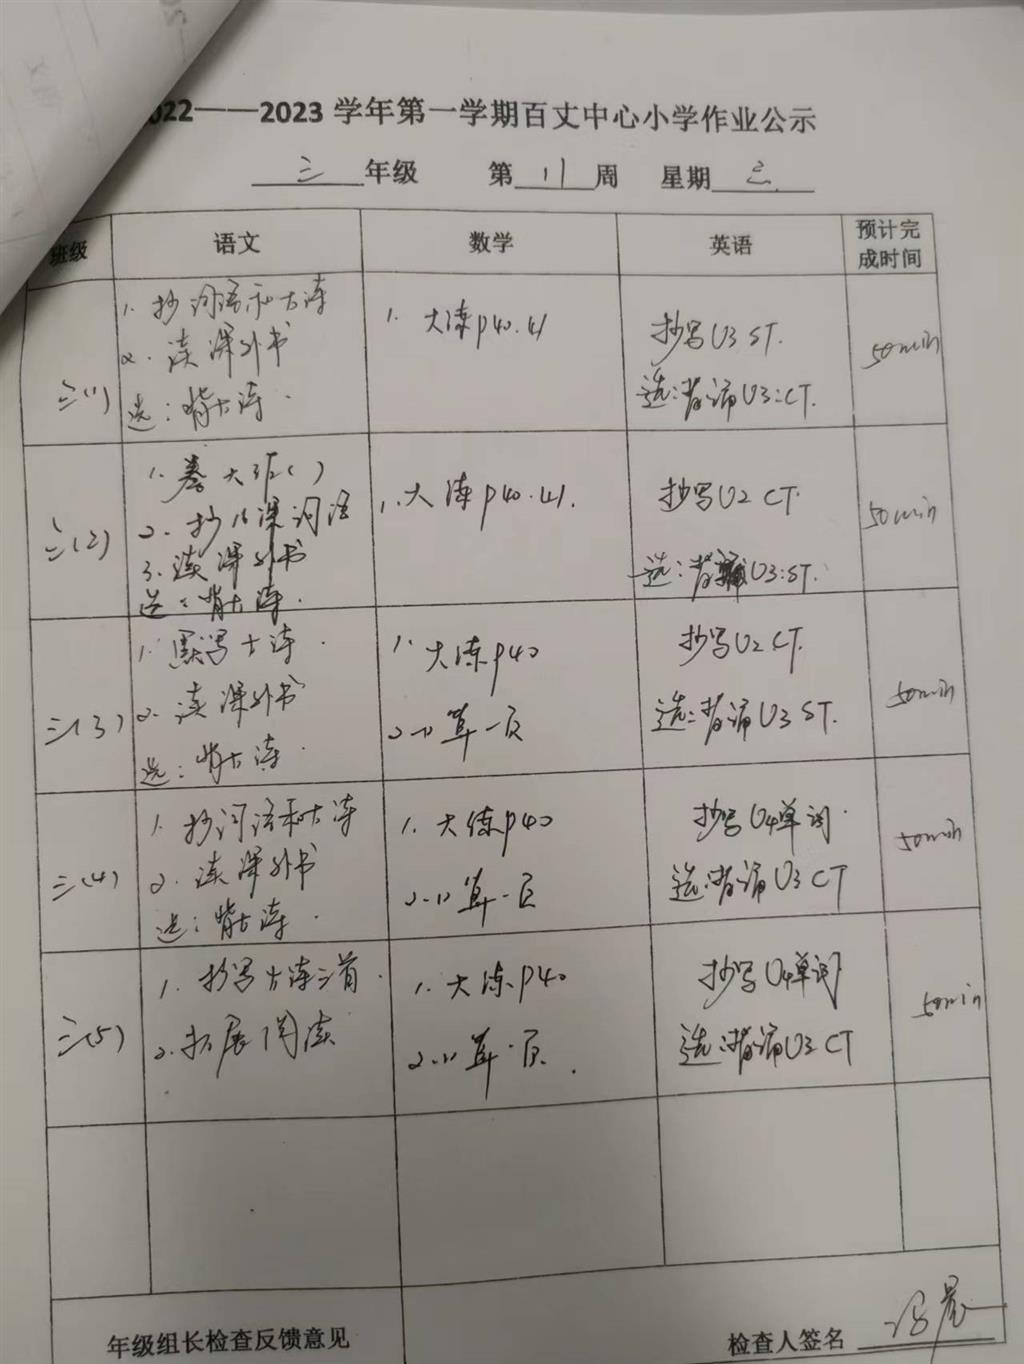 022——2023 学年第一学期百丈中心小学作业公示
三 年级 第 11 周 星期 三
班级 语文 数学 英语 预计完成时间
三(1)
1. 抄词语和古诗
2. 读课外书
选：背古诗.
1. 大练P40.41
抄写U3 ST.
选：背诵U3:CT.
50min
三(2)
2. 抄16课词语
3. 读课外书
选：背古诗.
1. 大练P40.41.
抄写U2 CT.
选：背诵U3:ST.
50min
三(3)
1. 默写古诗.
2. 读课外书
选：背古诗.
1. 大练P40
2. 口算一页
抄写U2 CT.
选：背诵U3 ST.
50min
三(4)
1. 抄词语和古诗
2. 读课外书
选：背古诗.
1. 大练P40
2. 口算一页
抄写U4单词.
选：背诵U3 CT
50min
三(5)
1. 抄写古诗三首.
2. 拓展阅读
1. 大练P40
2. 口算一页.
抄写U4单词
选：背诵U3 CT
50min
年级组长检查反馈意见
检查人签名